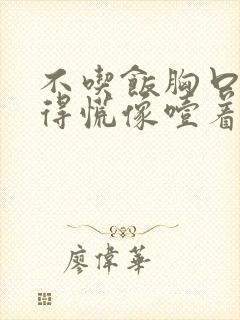 不喫飯胸口
得慌像噎着
廖偉華